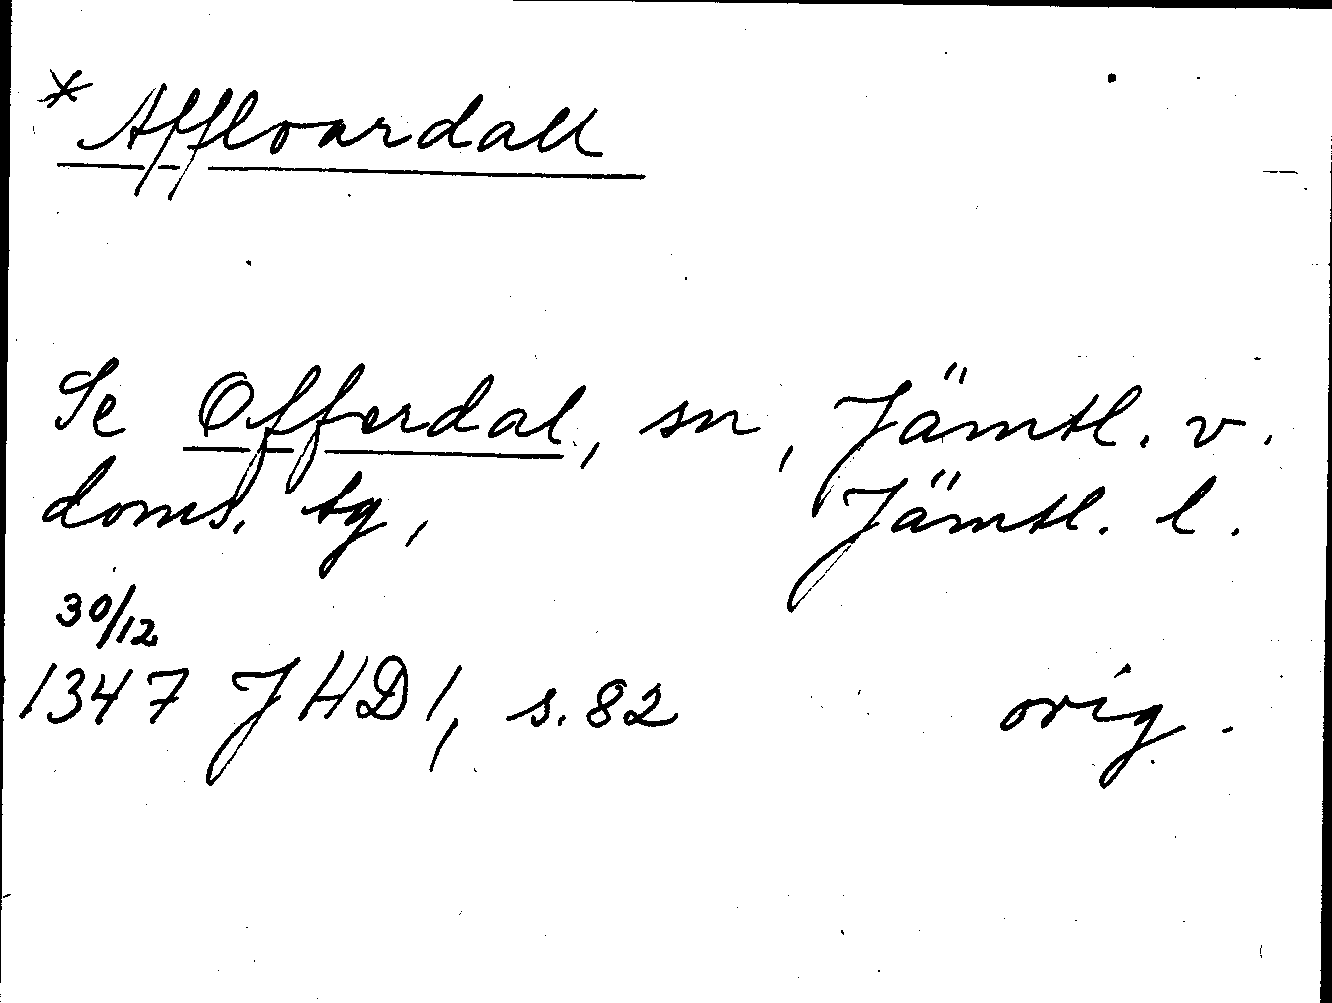 * Affloardall
Se Offerdal, sn, Jämtl. v.
doms. tg, Jämtl. l.
30/12
1347 JHD 1, s. 82 orig.